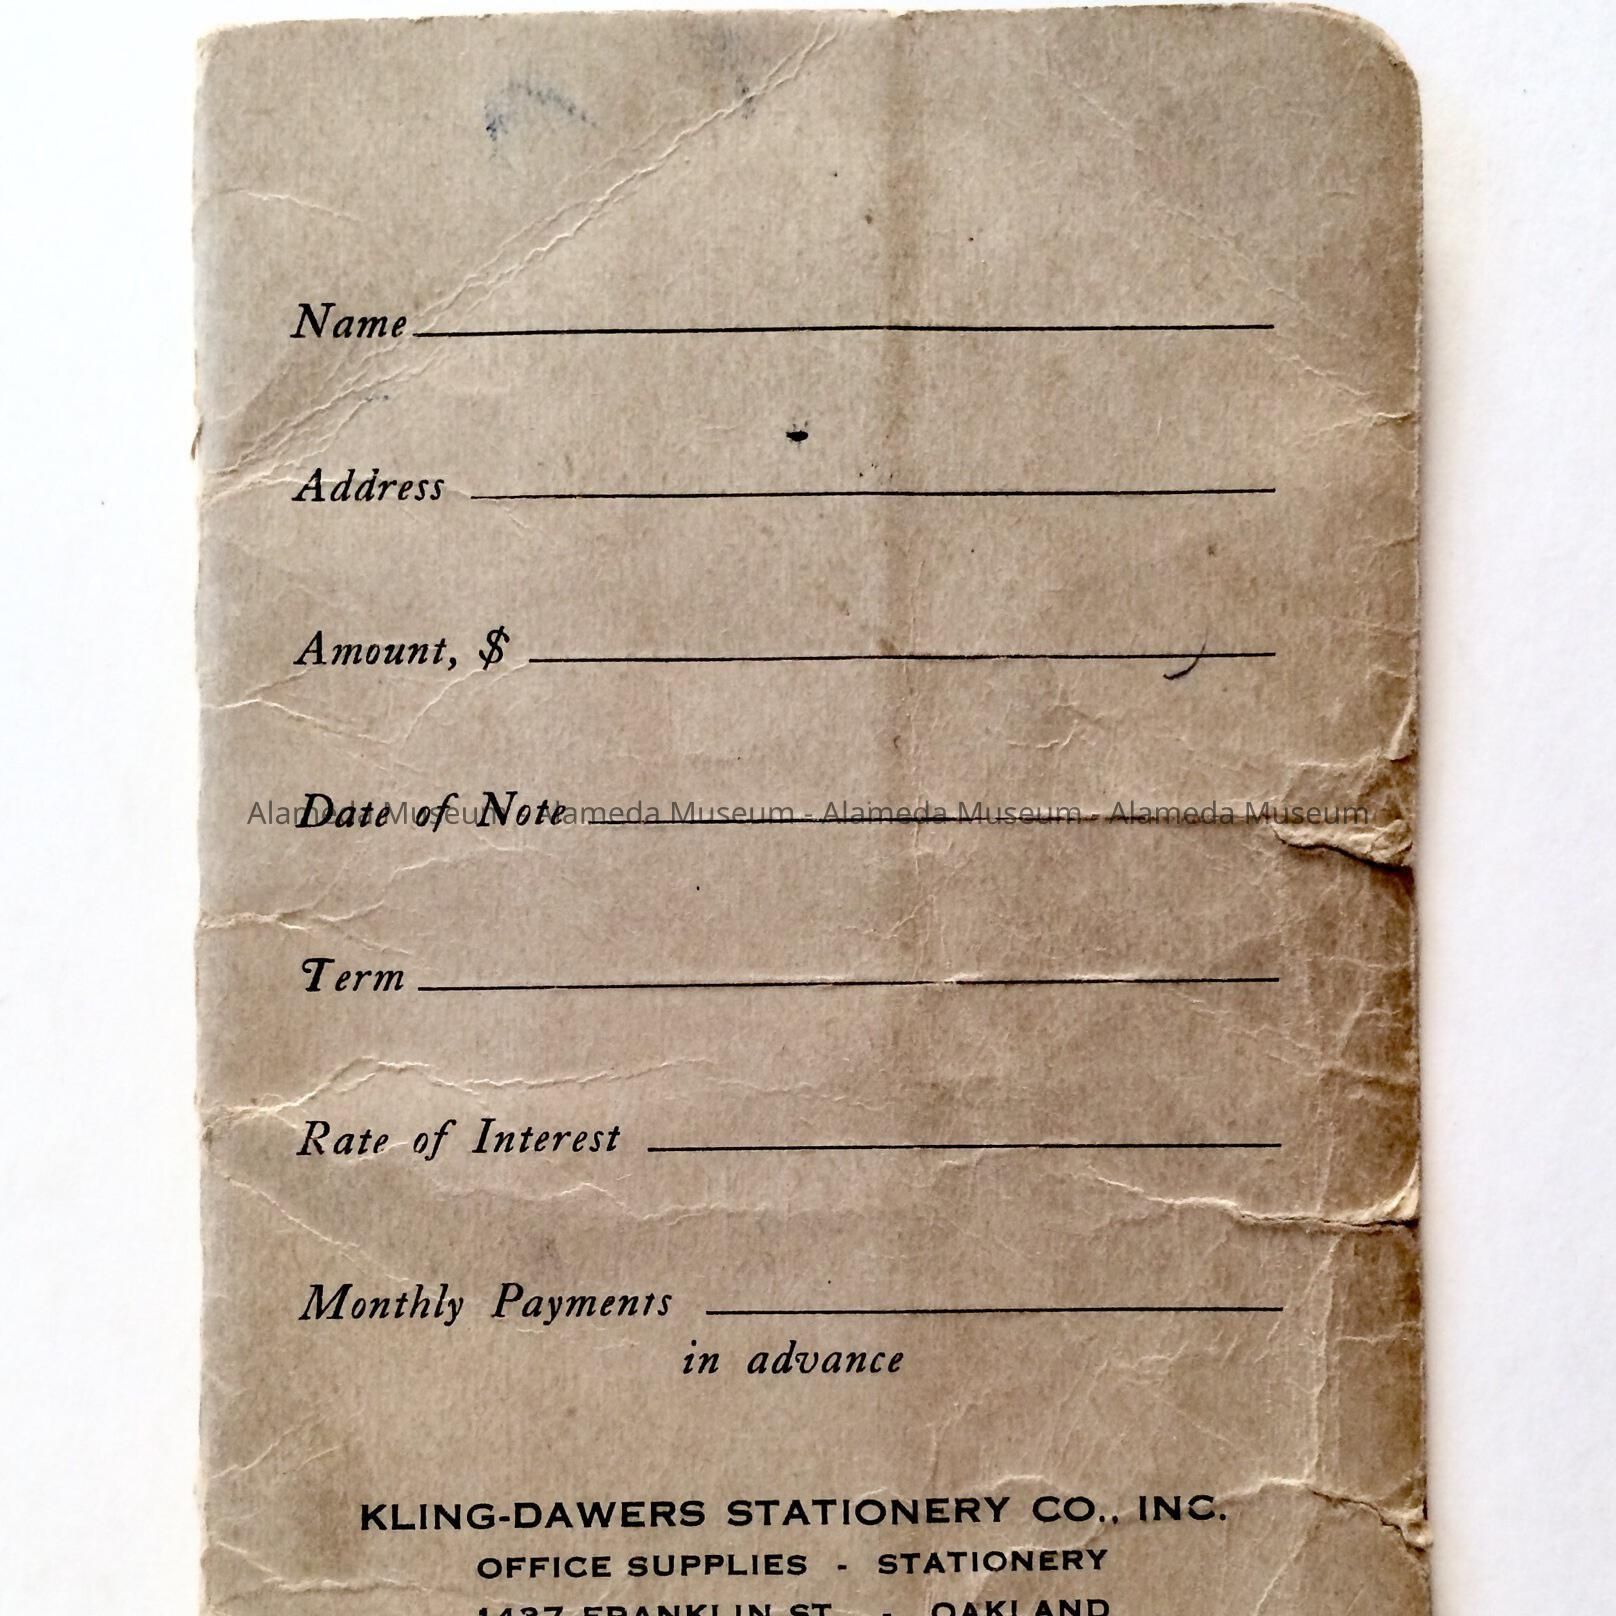 Name
Address
Amount, $
Date of Note
Alameda Museum - Alameda Museum - Alameda Museum - Alameda Museum
Term
Rate of Interest
Monthly Payments
in advance
KLING-DAWERS STATIONERY CO., INC.
OFFICE SUPPLIES - STATIONERY
1437 FRANKLIN ST. - OAKLAND